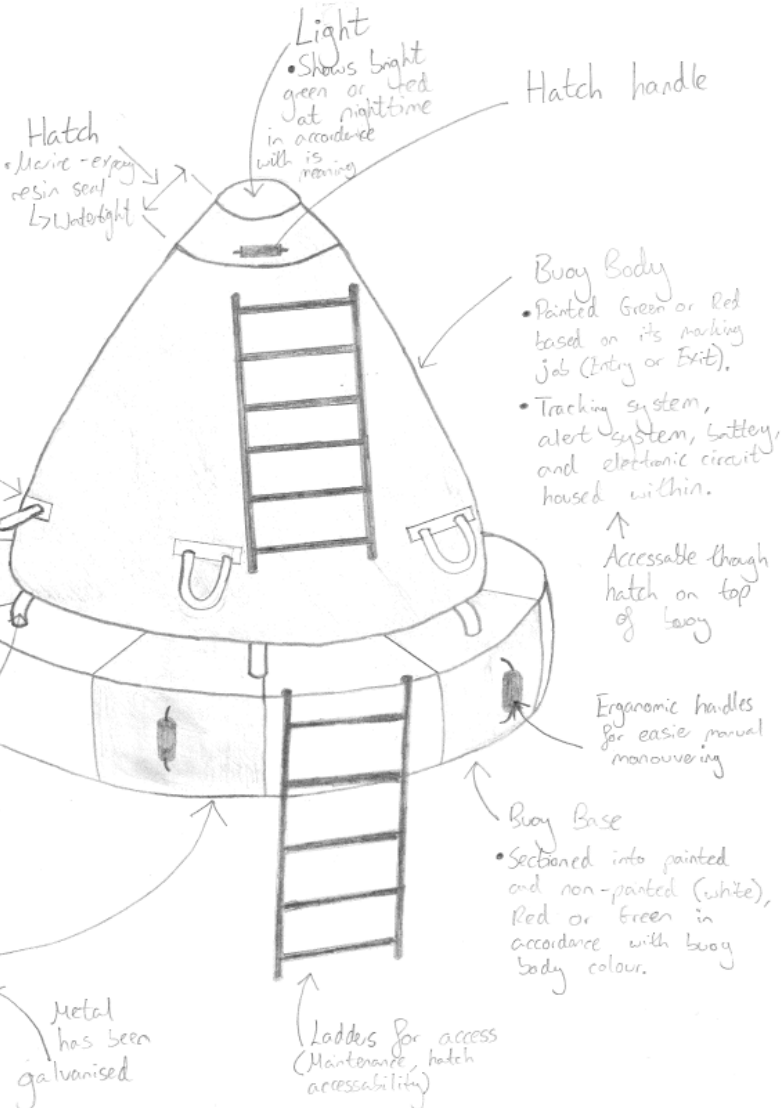 Light
• Shows bright
green or red
at nighttime
in accordance
with is
meaning
Hatch handle
Hatch
• Marine-epoxy
resin seal
↳ Watertight
Buoy Body
• Painted Green or Red
based on its marking
job (Entry or Exit).
• Tracking system,
alert system, battery,
and electronic circuit
housed within.
Accessable though
hatch on top
of buoy
Erganomic handles
for easie manual
manouvering
Buoy Base
• Sectioned into painted
and non-panted (white),
Red or Green in
accordance with buoy
body colour.
Metal
has been
galvanised
Ladders for access
(Maintenance, hatch
accessability)